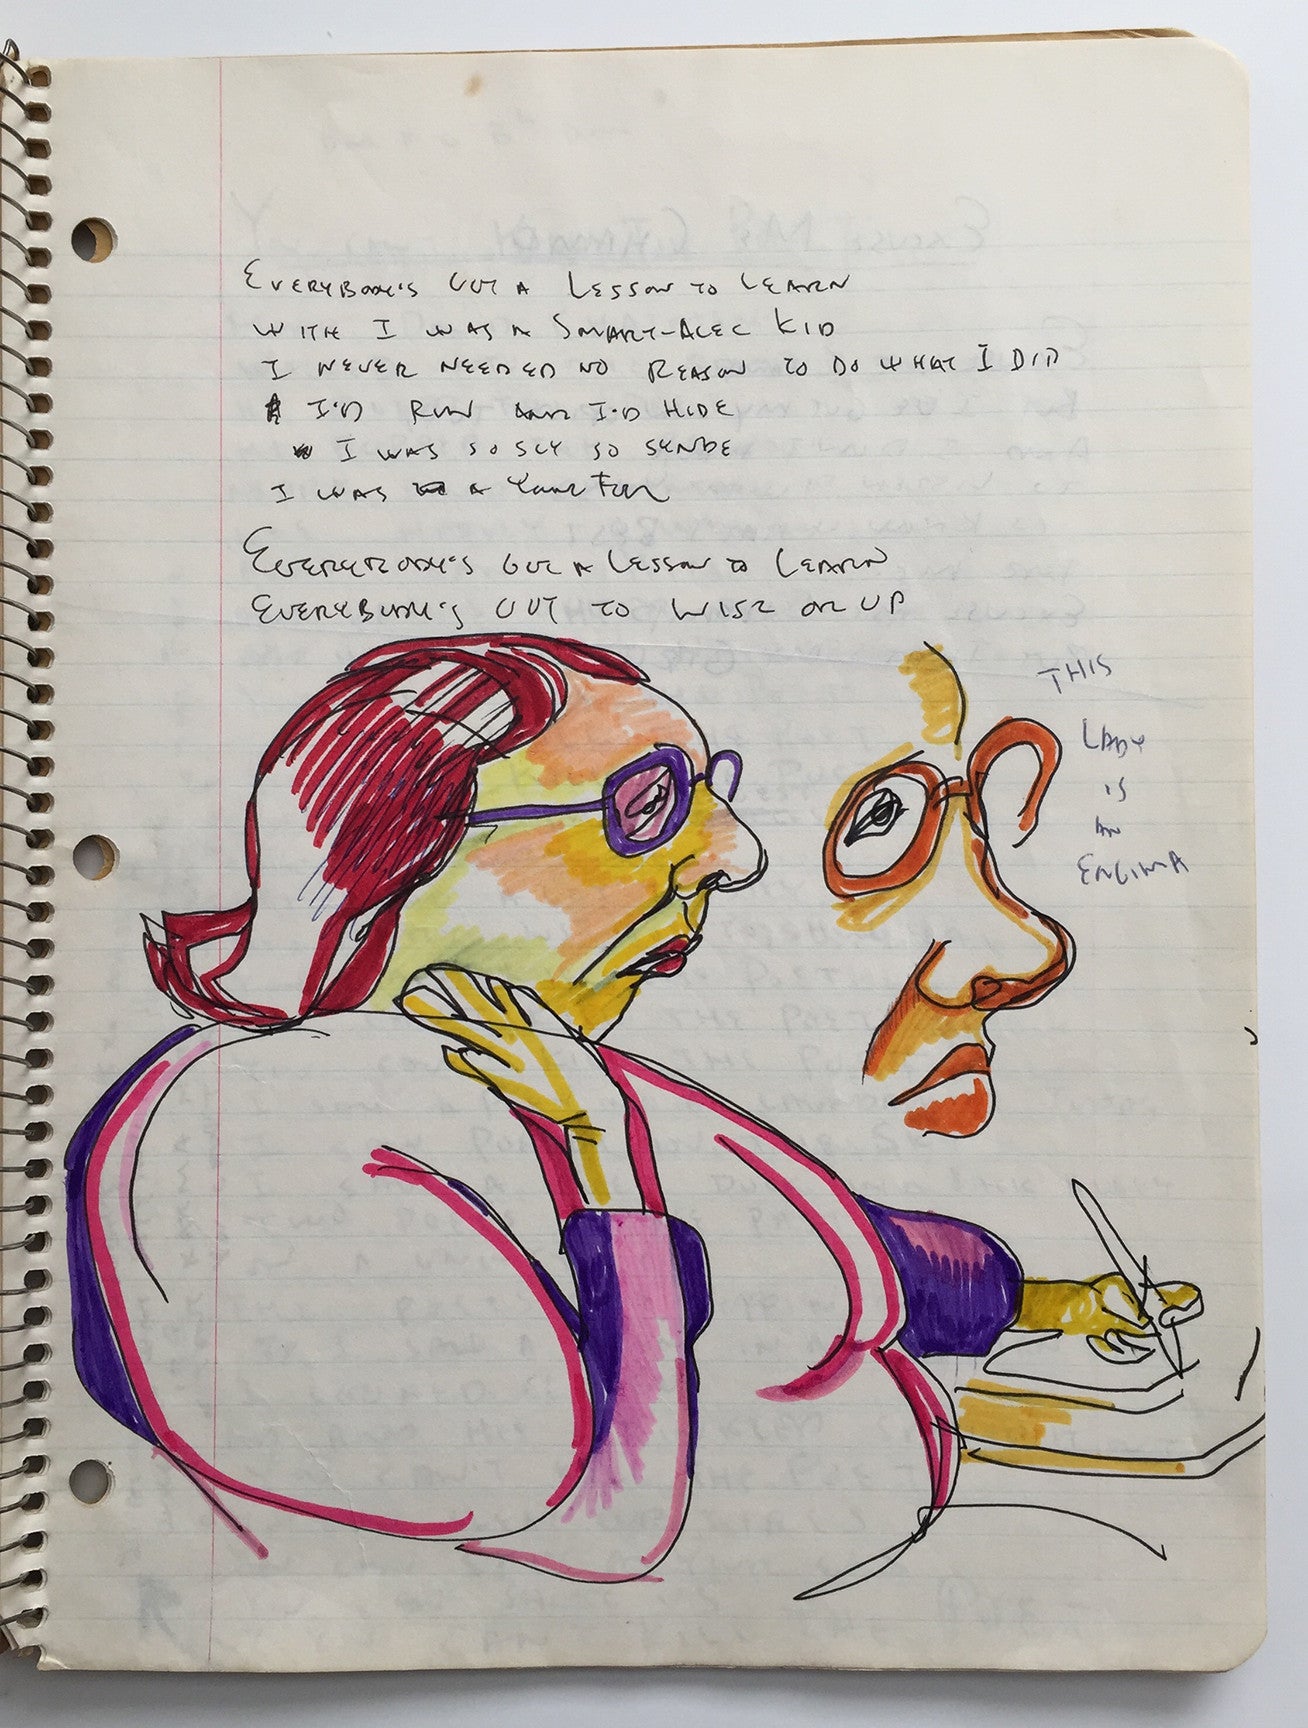 EVERYBODY'S GOT A LESSON TO LEARN
WITH I WAS A SMART-ALEC KID
I NEVER NEEDED NO REASON TO DO WHAT I DID
I'D RUN AND I'D HIDE
I WAS SO SLY SO SNIDE
I WAS A
EVERYBODY'S GOT A LESSON TO LEARN
EVERYBODY'S GOT TO WISE ON UP
THIS
LADY
IS
AN
ENGIMA